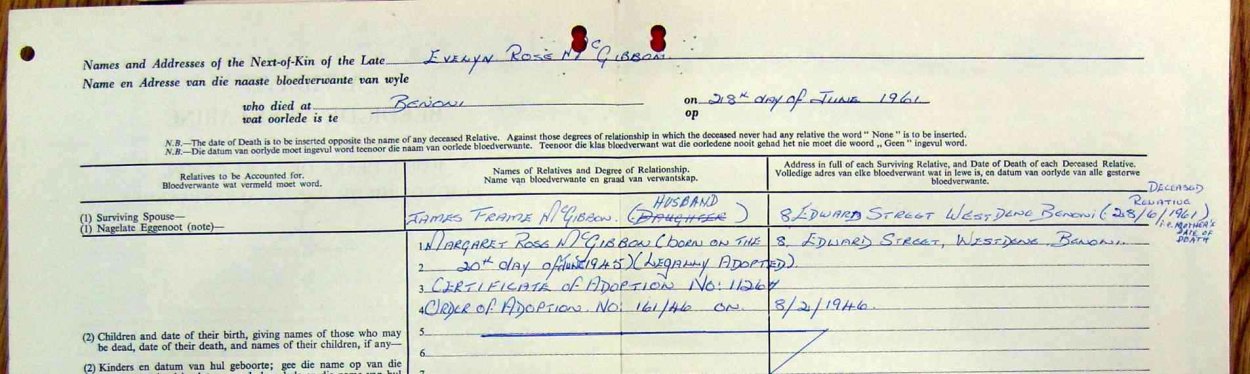 Names and Addresses of the Next-of-Kin of the Late EVELYN ROSE McGIBBON.
Name en Adresse van die naaste bloedverwante van wyle
who died at BENONI on 28th day of JUNE 1961
wat oorlede is te op
N.B.—The date of Death is to be inserted opposite the name of any deceased Relative. Against those degrees of relationship in which the deceased never had any relative the word "None" is to be inserted.
N.B.—Die datum van oorlyde moet ingevul word teenoor die naam van oorlede bloedverwante. Teenoor die klas bloedverwant wat die oorledene nooit gehad het nie moet die woord „Geen" ingevul word.
Relatives to be Accounted for.
Bloedverwante wat vermeld moet word.
Names of Relatives and Degree of Relationship.
Name van bloedverwante en graad van verwantskap.
Address in full of each Surviving Relative, and Date of Death of each Deceased Relative.
Volledige adres van elke bloedverwant wat in lewe is, en datum van oorlyde van alle gestorwe
bloedverwante.
(1) Surviving Spouse—
(1) Nagelate Eggenoot (note)—
HUSBAND
JAMES FRAME McGIBBON. (DAUGHTER)
8 EDWARD STREET WESTDENE BENONI (28/6/1961)
DECEASED
RELATIVE
i.e. MOTHER'S
DATE OF
DEATH
1 MARGARET ROSE McGIBBON (BORN ON THE 8, EDWARD STREET, WESTDENE BENONI.
2 20th DAY OF JUNE 1945) (LEGALLY ADOPTED)
3 CERTIFICATE OF ADOPTION NO: 11264
4 ORDER OF ADOPTION NO: 161/46 ON 8/2/1946.
5
6
7
(2) Children and date of their birth, giving names of those who may
be dead, date of their death, and names of their children, if any—
(2) Kinders en datum van hul geboorte; gee die name op van die